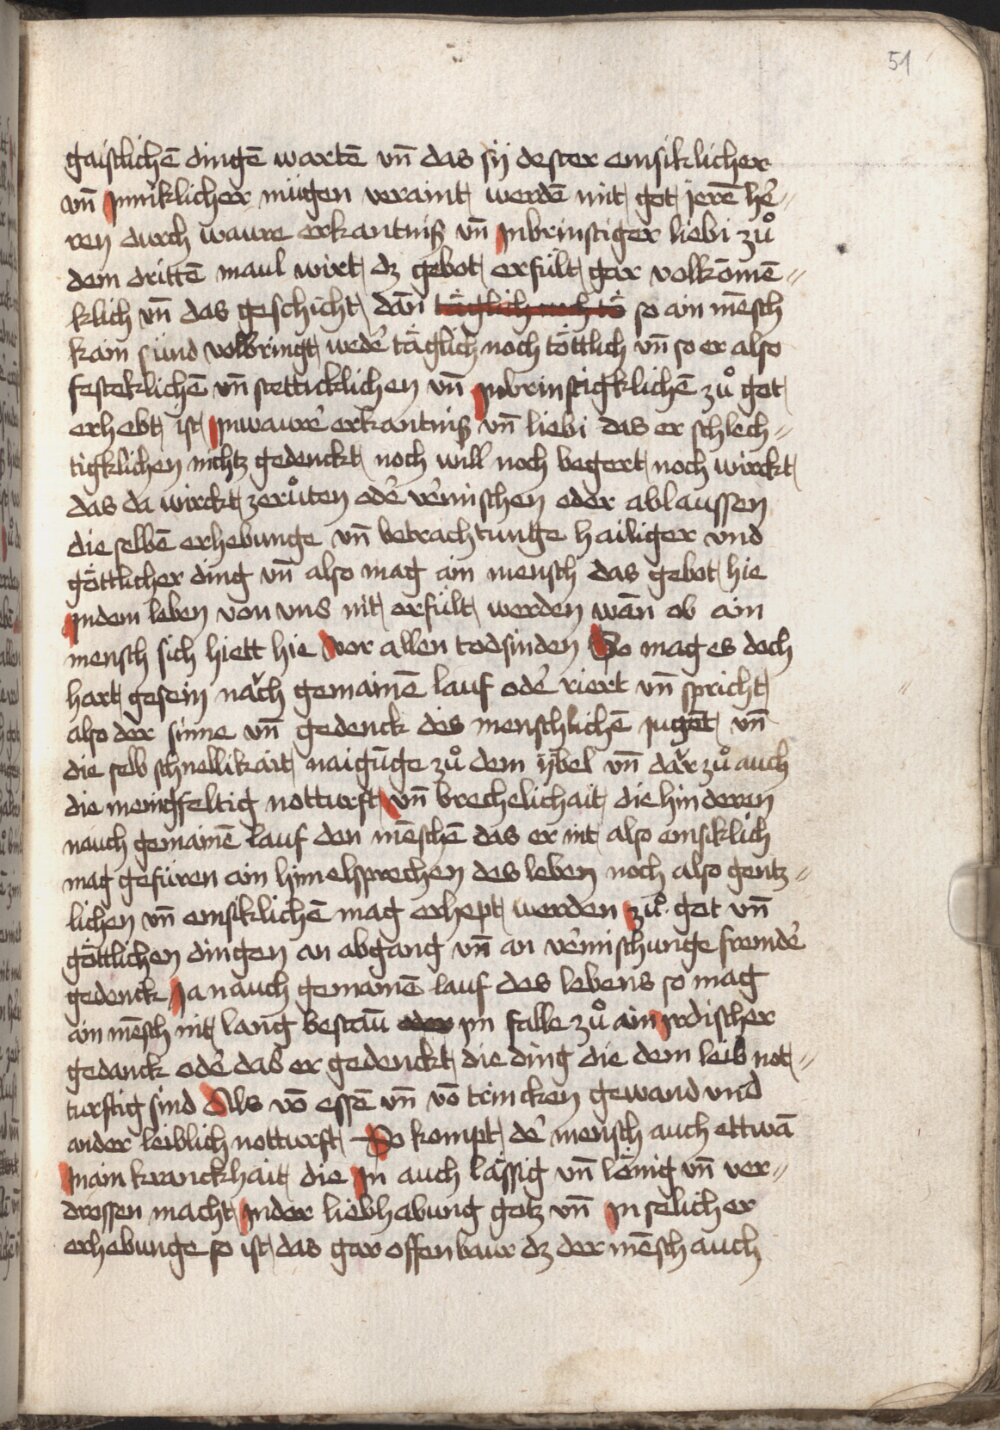 51
gaistlichē dingē wartē vn̄ das sÿ dester emsiklicher
vn̄ Jnniklicher mügen veraint werdē mit got jerē he͛=
ren durch waure erkantniß vn̄ Jnbrinstiger liebi zů
dem drittē maul wirt dz gebot erfült gar volkōmē=
klich vn̄ das geschicht dān täglich noch tö so ain mēsch
kain sünd volbringt wede͛ täglich noch töttlich vn̄ so er also
festeklichē vn̄ stettucklichen vn̄ Jnbrinstigklichē zů got
erhebt ist Jnwaure͛ erkantniß vn̄ liebi das er schlech=
tigklichen nichtz gedenckt noch will noch begert noch wirckt
das da wirckt zerůten ode͛ ve͛mischen oder ablaussen
die selbē erhebunge vn̄ betrachtunge hailiger vnd
göttlicher ding vn̄ also mag ain mensch das gebot hie
Jndem leben von vns nit erfült werden wān ob ain
mensch sich hiett hie vor allen todsinden So mag es doch
hart gesein nǎch gemainē lauf ode͛ riert vn̄ spricht
also der sinne vn̄ gedenck des menschlichē jugēt vn̄
die selb schnellikait naigūge zů dem ÿbel vn̄ dǎr zů auch
die menigfeltig notturft vn̄ brechelichait die hinderen
nauch gemainē lauf den mēschē das er nit also emsiklich
mag gefüren ain himelsprechen des leben noch also gentz=
lichen vn̄ emsiklichē mag erhept werden zů got vn̄
göttlichen dingen an abgang vn̄ an ve͛mischunge fremde͛
gedenck Ja nauch gemainē lauf des lebens so mag
ain mēsch nit lang bestau̅ oder jm falle zů ain jrdischer
gedanck ode͛ das er gedenckt die ding die dem leib not=
turftig sind Als vō essē vn̄ vō trincken gewand vnd
ander leiblich notturft So kompt de͛ mensch auch ettwā
Jnain kranckhait die Jn auch lässig vn̄ lömig vn̄ ver=
drossen macht Jnder liebhabung gotz vn̄ Jn selicher
erhebunge so ist das gar offenbaur dz der mēsch auch